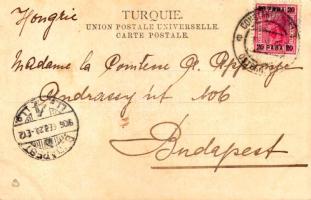 Hongrie
TURQUIE.
UNION POSTALE UNIVERSELLE.
CARTE POSTALE.
20 PARA 20
Madame la Comtesse A. Apponyi
Andrassy út 106
Budapest
BUDAPEST